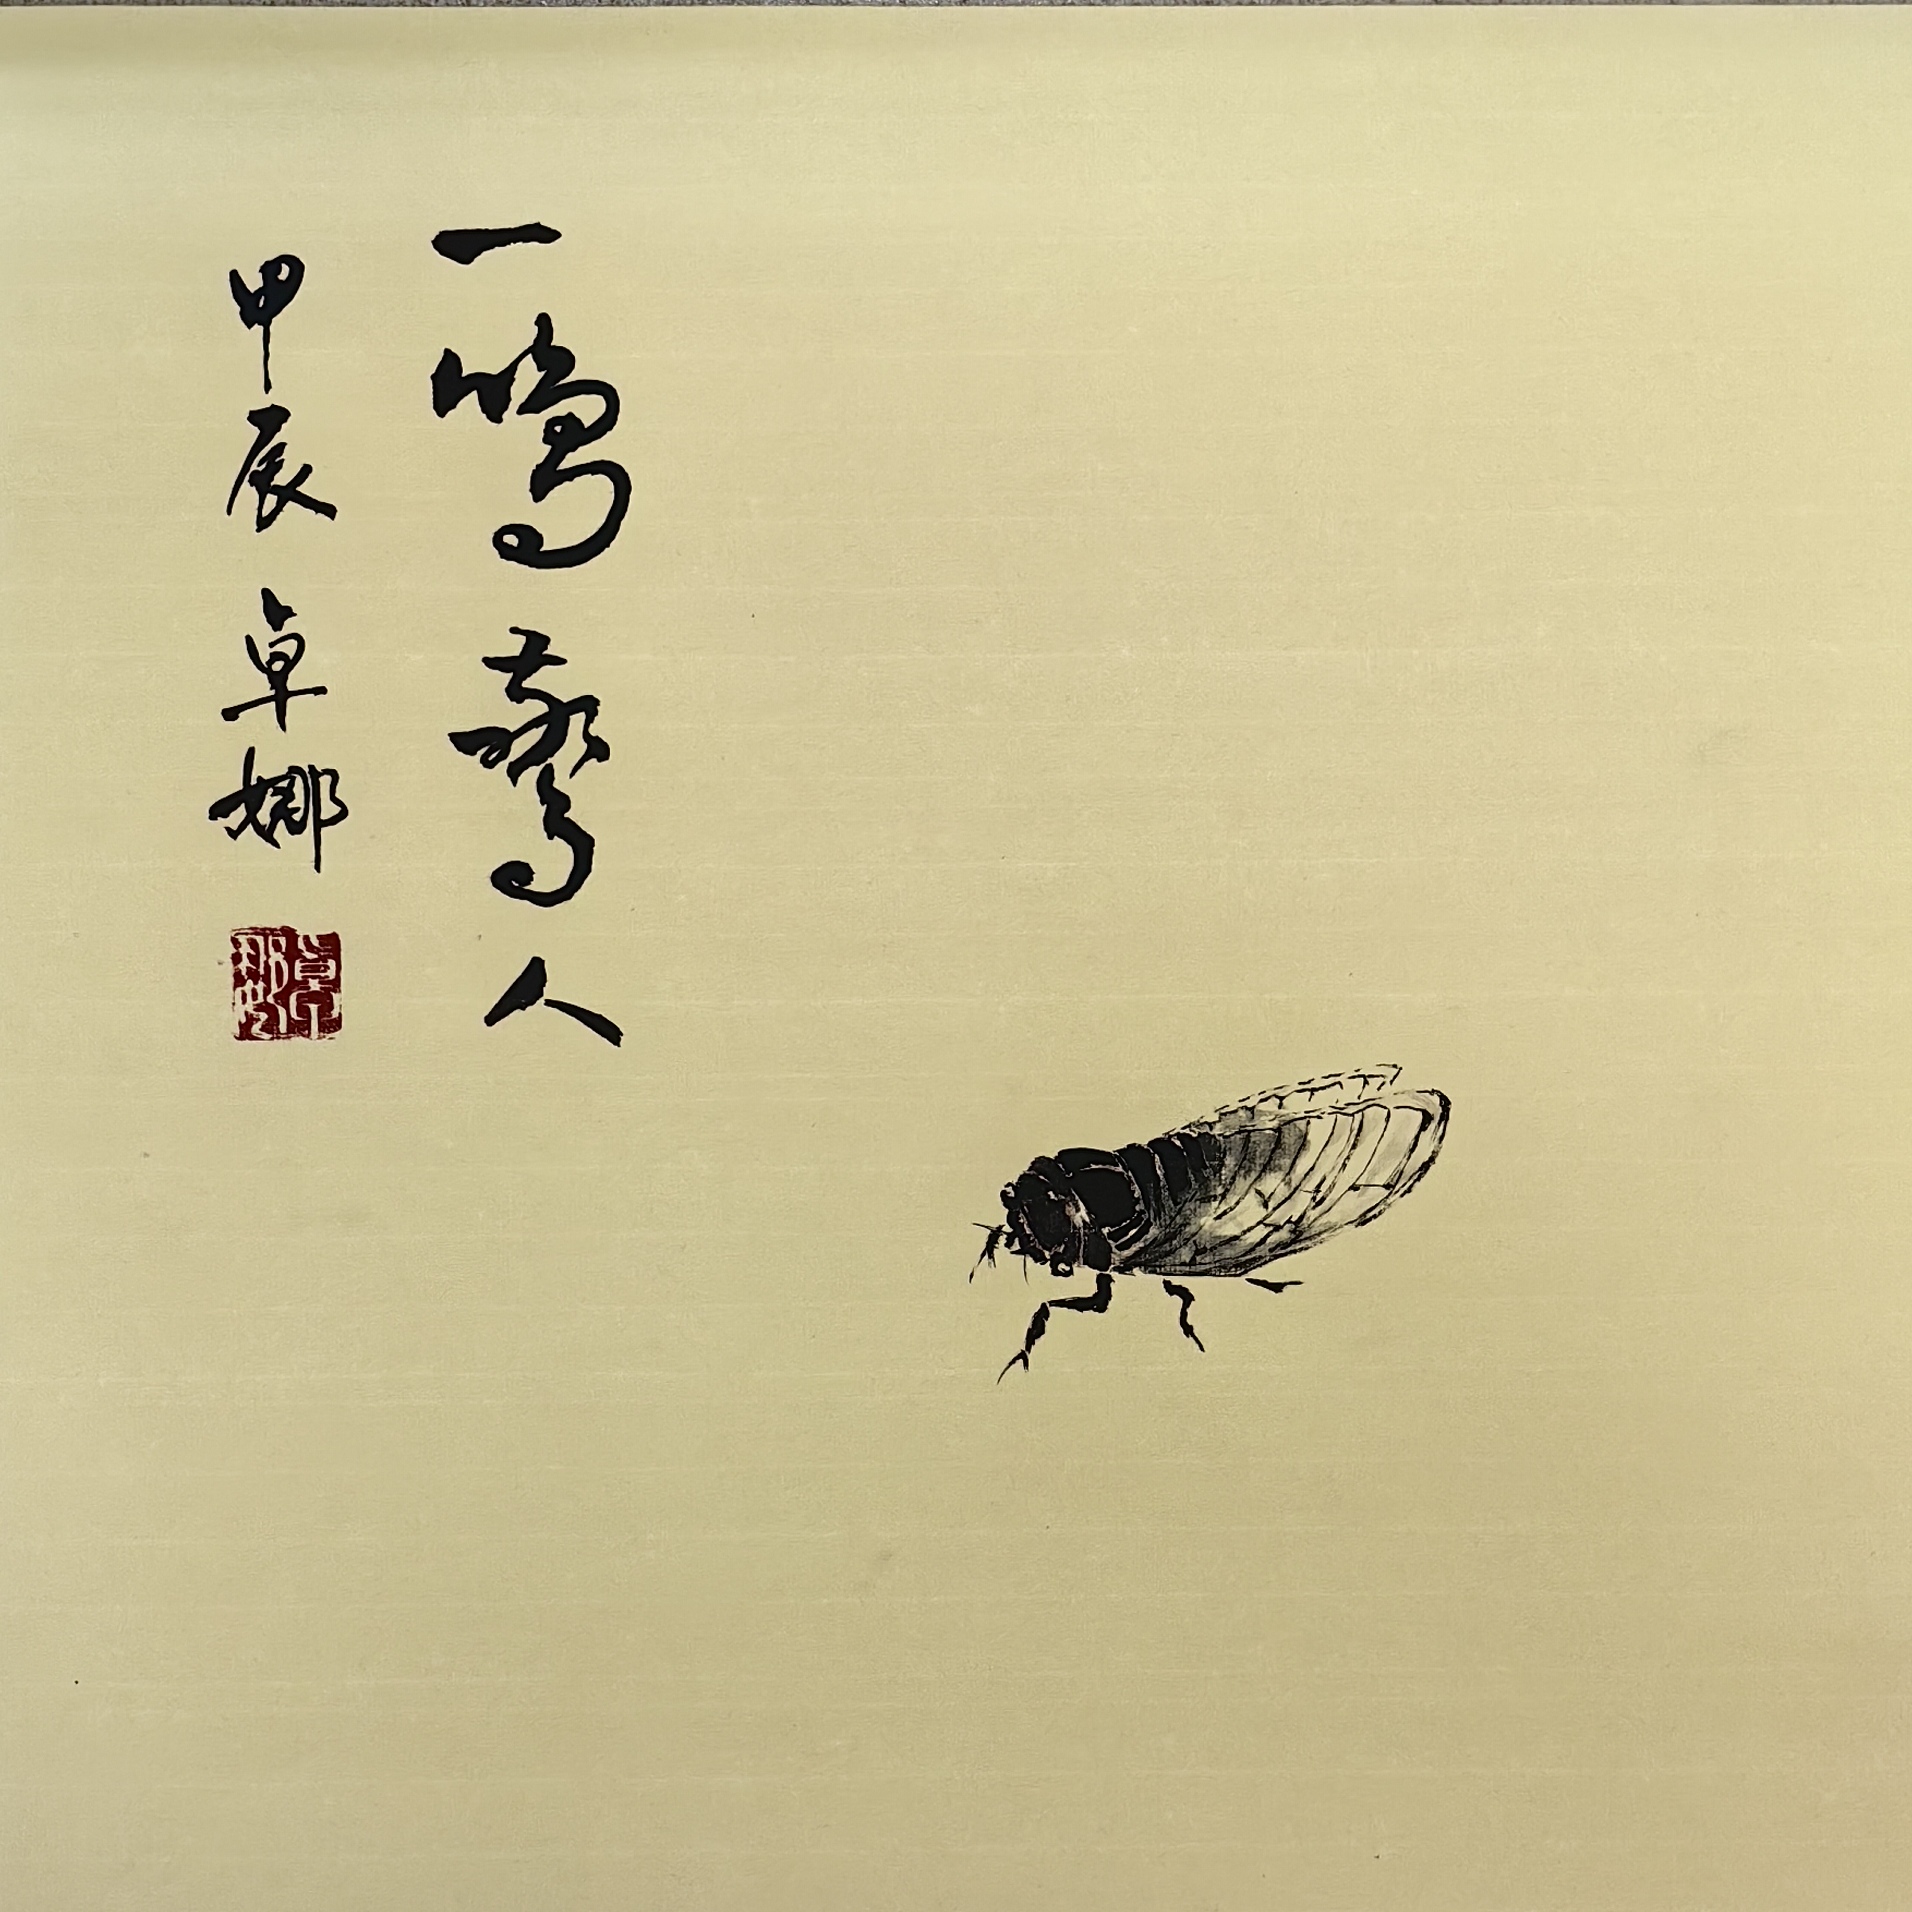 一鸣驚人
甲辰 卓娜
卓娜